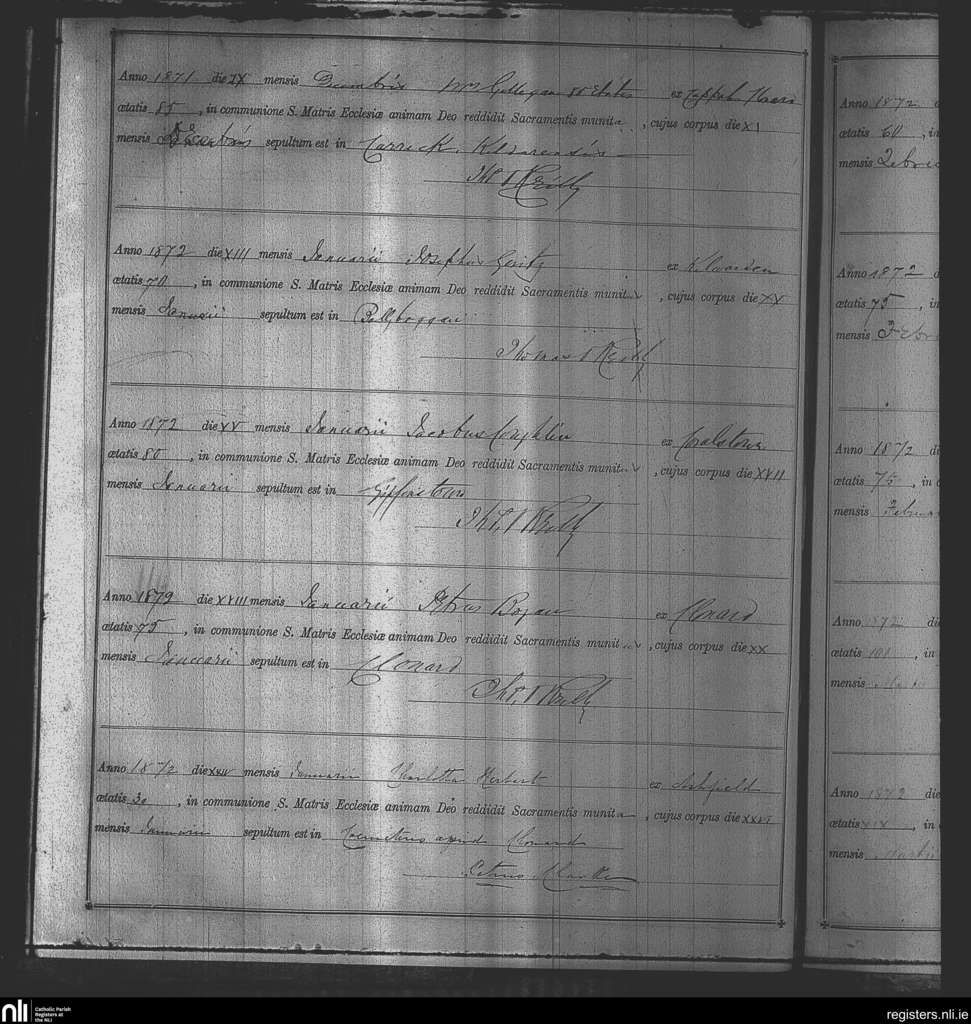 Anno 1871 die IX mensis Decembris Gillegan 85 etatis ex
ætatis 85, in communione S. Matris Ecclesiæ animam Deo reddidit Sacramentis munita, cujus corpus die XI
mensis sepultum est in Carrick
Ths. O Reilly
Anno 1872 die XIII mensis Januarii Josephus ex
ætatis 70, in communione S. Matris Ecclesiæ animam Deo reddidit Sacramentis munit, cujus corpus die XV
mensis Januarii sepultum est in Ballyboggan
Thomas O Reilly
Anno 1872 die XV mensis Januarii Jacobus Coughlin ex
ætatis 80, in communione S. Matris Ecclesiæ animam Deo reddidit Sacramentis munit, cujus corpus die XVII
mensis Januarii sepultum est in Giffinstown
Ths. O Reilly
Anno 1872 die XVIII mensis Januarii Petrus Bogan ex Clonard
ætatis 75, in communione S. Matris Ecclesiæ animam Deo reddidit Sacramentis munit, cujus corpus die XX
mensis Januarii sepultum est in Clonard
Ths. O Reilly
Anno 1872 die mensis Januarii Charlotta Herbert ex Ashfield
ætatis 30, in communione S. Matris Ecclesiæ animam Deo reddidit Sacramentis munita, cujus corpus die XXVI
mensis Januarii sepultum est in apud Clonard
Petrus Clarke
Anno 1872
ætatis 60, in
mensis
Anno 1872
ætatis 75, in
mensis
Anno 1872 di
ætatis 75, in
mensis
Anno 1872 di
ætatis 100, in
mensis
Anno 1872 die
ætatis XIX, in
mensis
nli Catholic Parish
Registers at
the NLI
registers.nli.ie